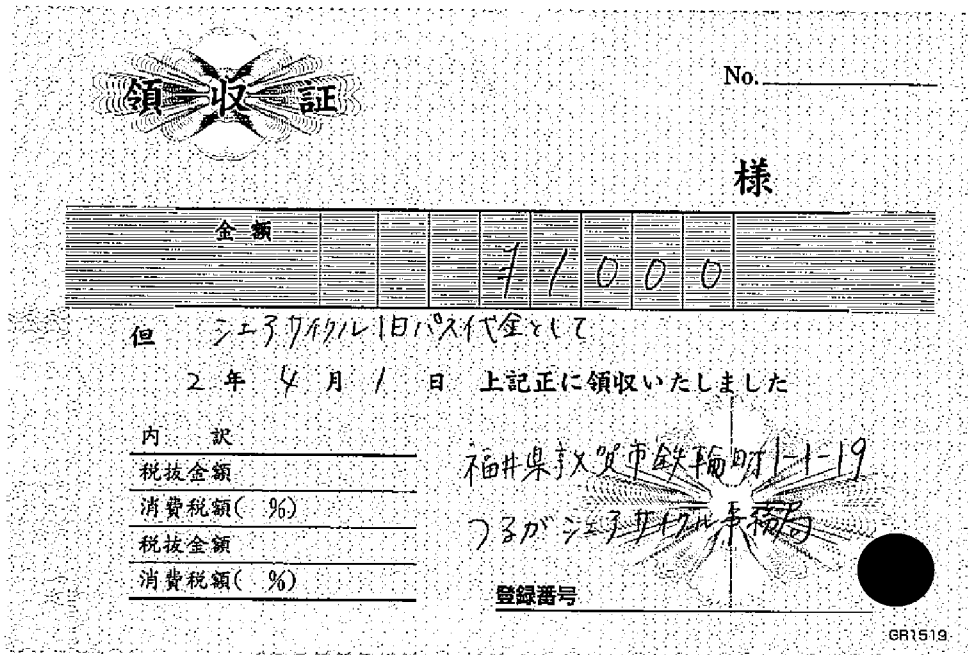 領収証
No.
様
金額 ¥1000
但 シェアサイクル1日パス代金として
2年4月1日 上記正に領収いたしました
内訳
税抜金額
消費税額( %)
税抜金額
消費税額( %)
福井県敦賀市鉄輪町1-1-19
つるがシェアサイクル事務局
登録番号
GR1519